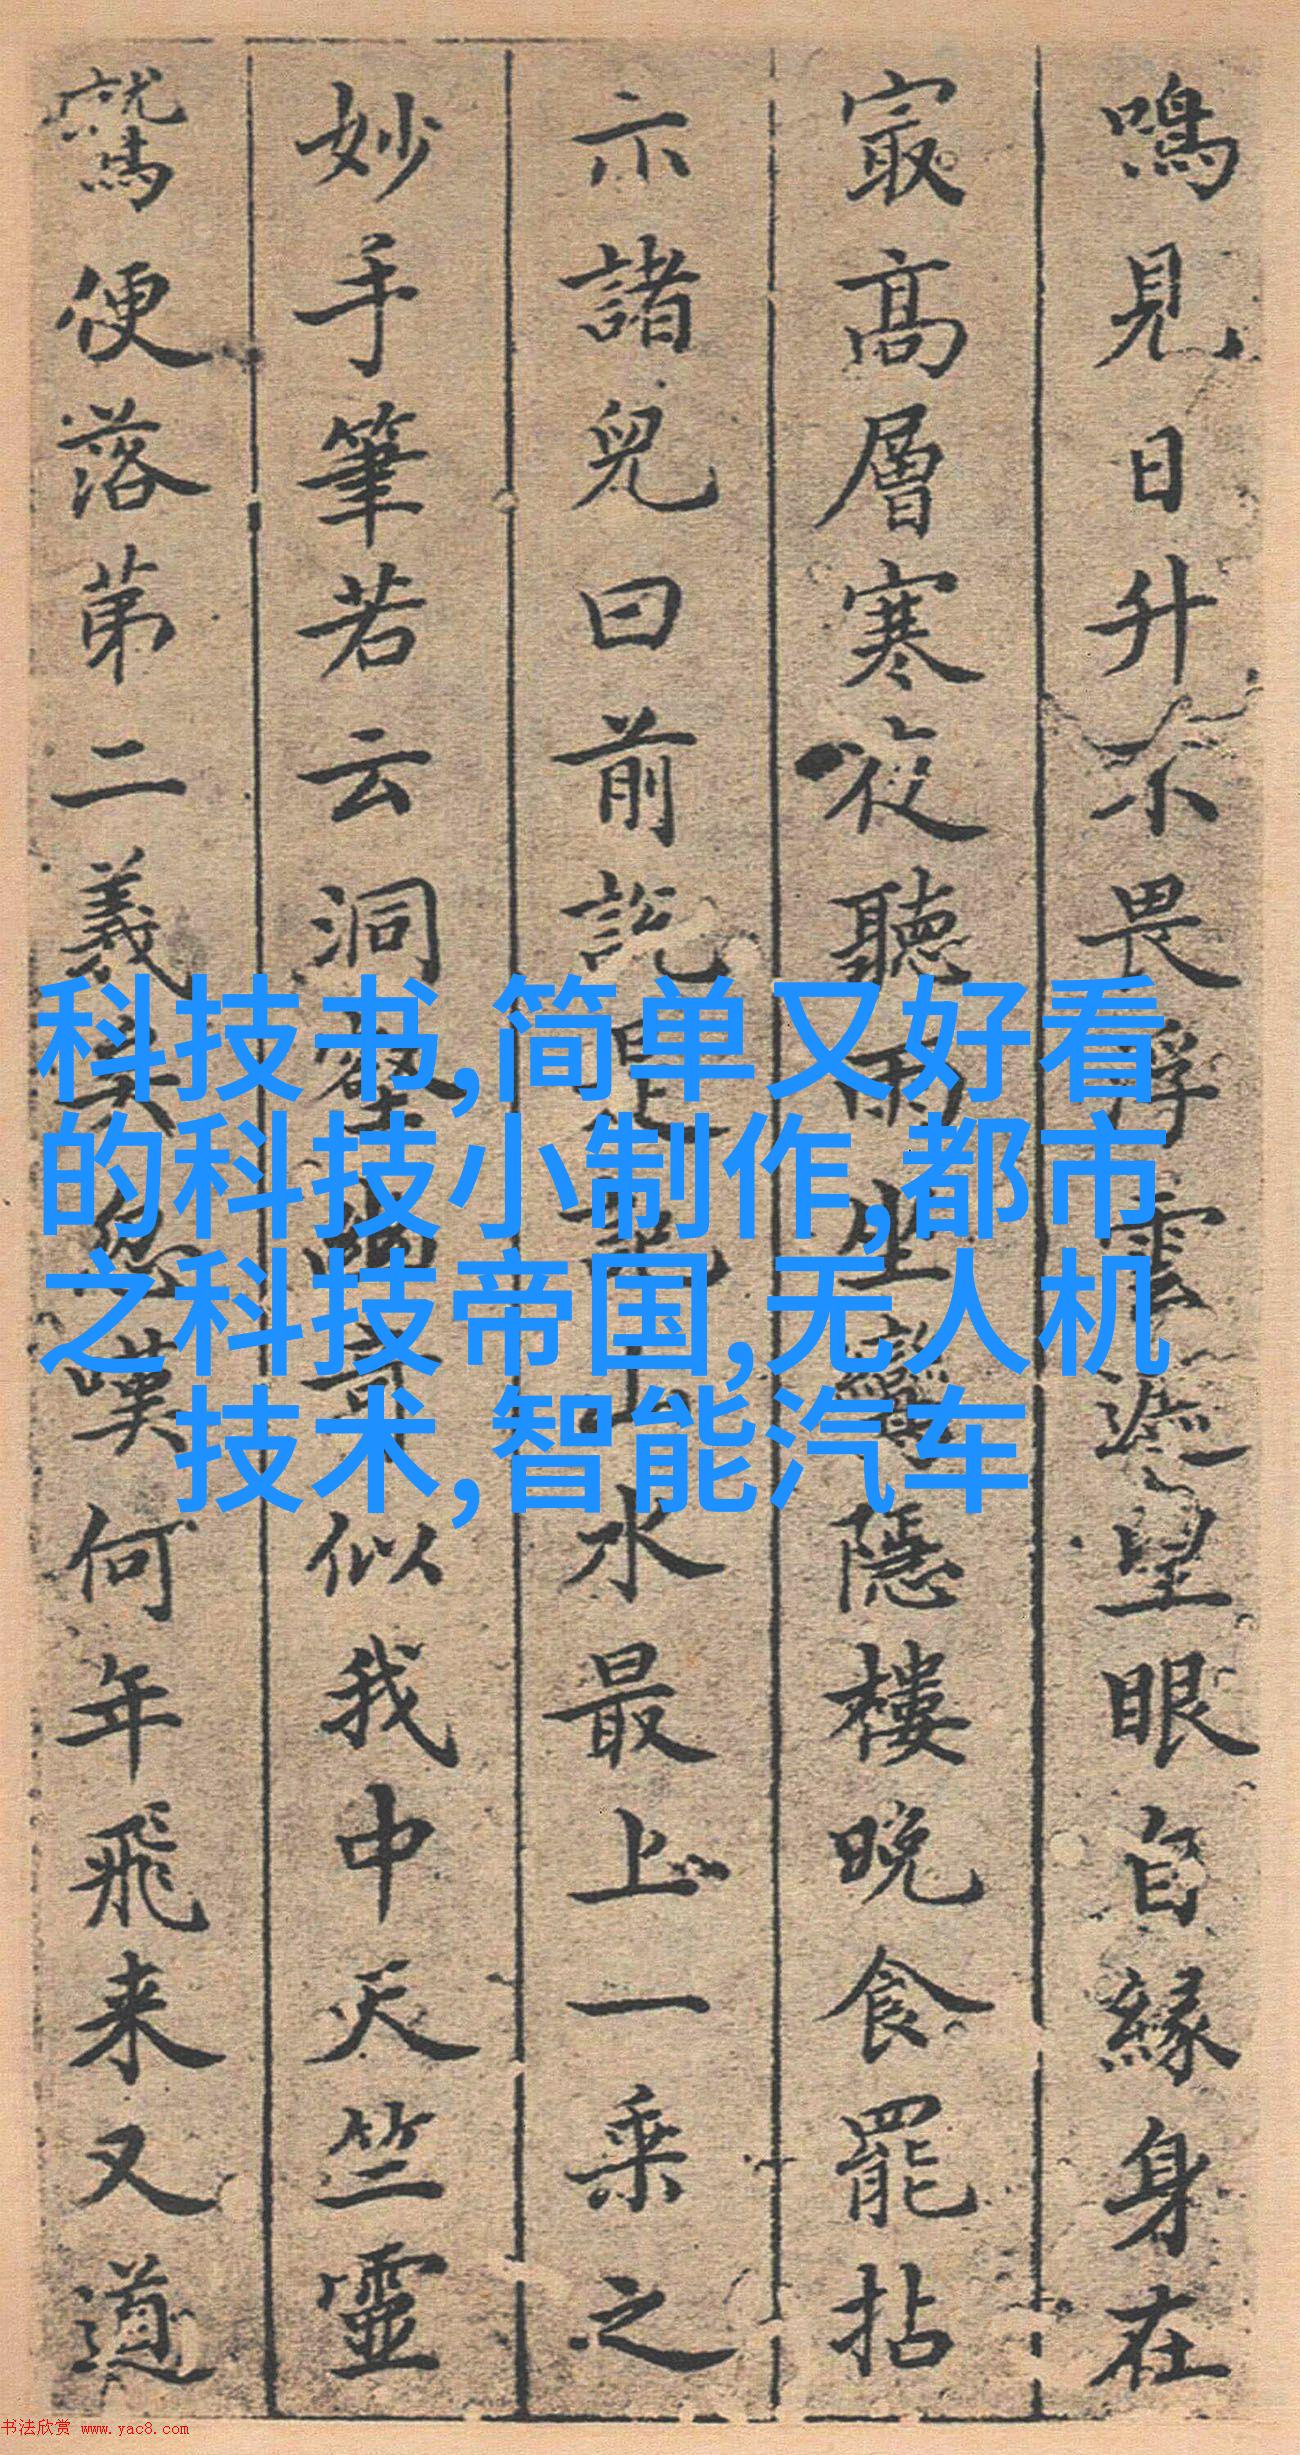 鳴見日升不畏浮雲遮望眼自緣身在
冣高層寒夜聽雨坐隱樓晚食罷拈
示諸兒曰前說是山水最上一乘之
妙手筆若云洞壑幽奇似我中天竺靈
鷲便落第二義矣忽嘆何年飛来又道
科技书,简单又好看
的科技小制作,都市
之科技帝国,无人机
技术,智能汽车
书法欣赏 www.yac8.com